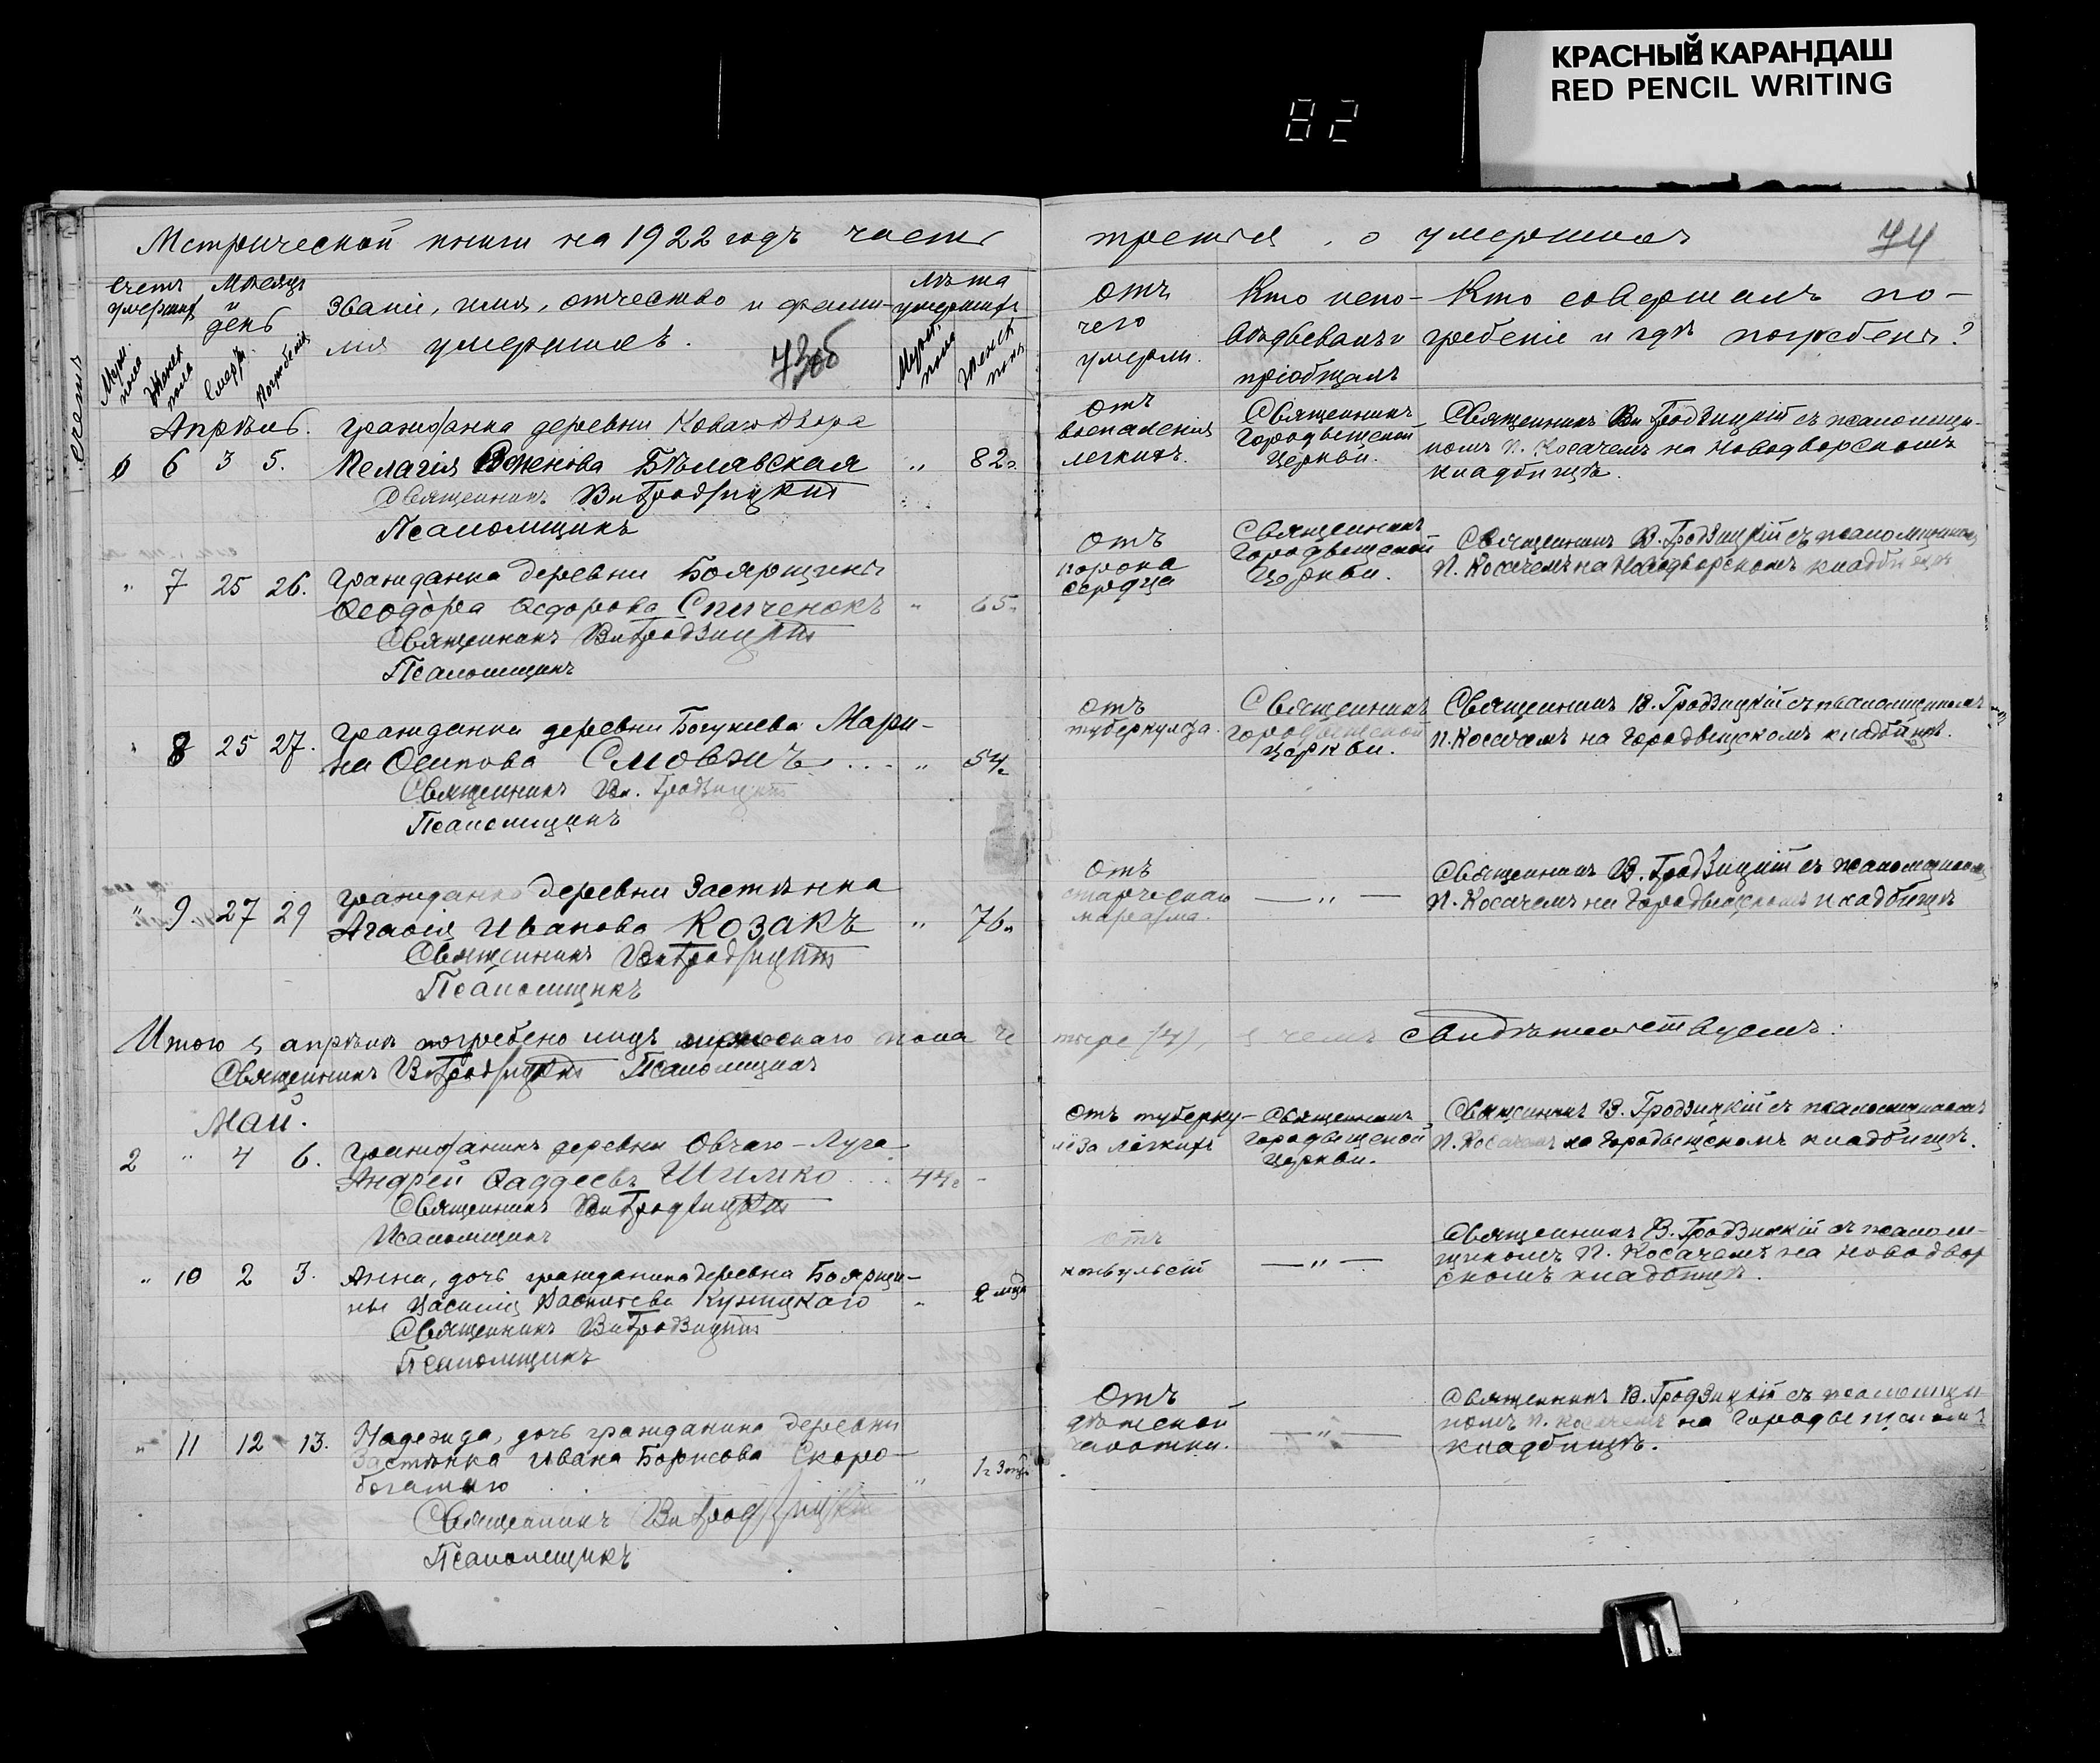 КРАСНЫЙ КАРАНДАШ
RED PENCIL WRITING
82
Метрической книги на 1922 годъ часть
третья, о умершихъ
74
Счетъ умершихъ
Мѣсяцъ и день
Званіе, имя, отчество и фами-
лія умершихъ.
Лѣта умершихъ
Муж. пола
Женск. пола
Смерти.
Погребенія
Муж. пола
Женск. пола
Отъ
чего
умерли.
Кто испо-
вѣдывалъ и
пріобщалъ
Кто совершалъ по-
гребеніе и гдѣ погребены?
Апрѣль.
6 3 5.
гражданка деревни Новаго Двора
Пелагія Бѣлявская " 82
Священникъ Вл Гродзицкій
Псаломщикъ
Отъ
воспаленія
легкихъ.
Священникъ
Городыщеской
Церкви.
Священникъ Вл Гродзицкій съ псаломщи-
комъ П. Косачемъ на Новодворскомъ
кладбищѣ.
" 7 25 26.
Гражданка деревни Боярщины
Ѳеодора Ѳедорова Спиченокъ " 65
Священникъ Вл Гродзицкій
Псаломщикъ
Отъ
порока
сердца
Священникъ
Городыщеской
Церкви.
Священникъ В. Гродзицкій съ псаломщикомъ
П. Косачемъ на Новодворскомъ кладбищѣ
" 8 25 27.
гражданка деревни Мари-
на Осипова " 54
Священникъ Вл. Гродзицкій
Псаломщикъ
Отъ
туберкулеза.
Священникъ
Городыщеской
церкви.
Священникъ В. Гродзицкій съ псаломщикомъ
П. Косачемъ на Городыщскомъ кладбищѣ.
" 9. 27 29
гражданка деревни Застѣнка
Агаѳія Иванова Козакъ " 76
Священникъ Вл Гродзицкій
Псаломщикъ
Отъ
старческаго
маразма.
— " —
Священникъ В. Гродзицкій съ псаломщикомъ
П. Косачемъ на Городыщскомъ кладбищѣ
Итого въ апрѣлѣ погребено лицъ женскаго пола че
тыре (4), въ чемъ свидѣтельствуемъ:
Священникъ В Гродзицкій Псаломщикъ
Май.
2 " 4 6.
гражданинъ деревни Овчаго-Луга
Андрей Ѳаддеевъ Шимко 44 -
Священникъ Вл Гродзицкій
Псаломщикъ
Отъ туберку-
лёза лёгкихъ
Священникъ
Городыщеской
Церкви.
Священникъ В. Гродзицкій съ псаломщикомъ
П. Косачемъ на Городыщскомъ кладбищѣ.
" 10 2 3.
Анна, дочь гражданина деревни Боярщи-
ны Василія " 2
Священникъ Вл Гродзицкій
Псаломщикъ
Отъ
конвульсій
— " —
Священникъ В. Гродзицкій съ псалом-
щикомъ П. Косачемъ на Новодвор
скомъ кладбищѣ.
" 11 12 13.
Надежда, дочь гражданина деревни
Застѣнка Ивана Борисова Скоро-
богатаго "
Священникъ Вл Гродзицкій
Псаломщикъ
Отъ
дѣтской
чахотки.
— " —
Священникъ В. Гродзицкій съ псаломщи
комъ П. Косачемъ на Городыщскомъ
кладбищѣ.